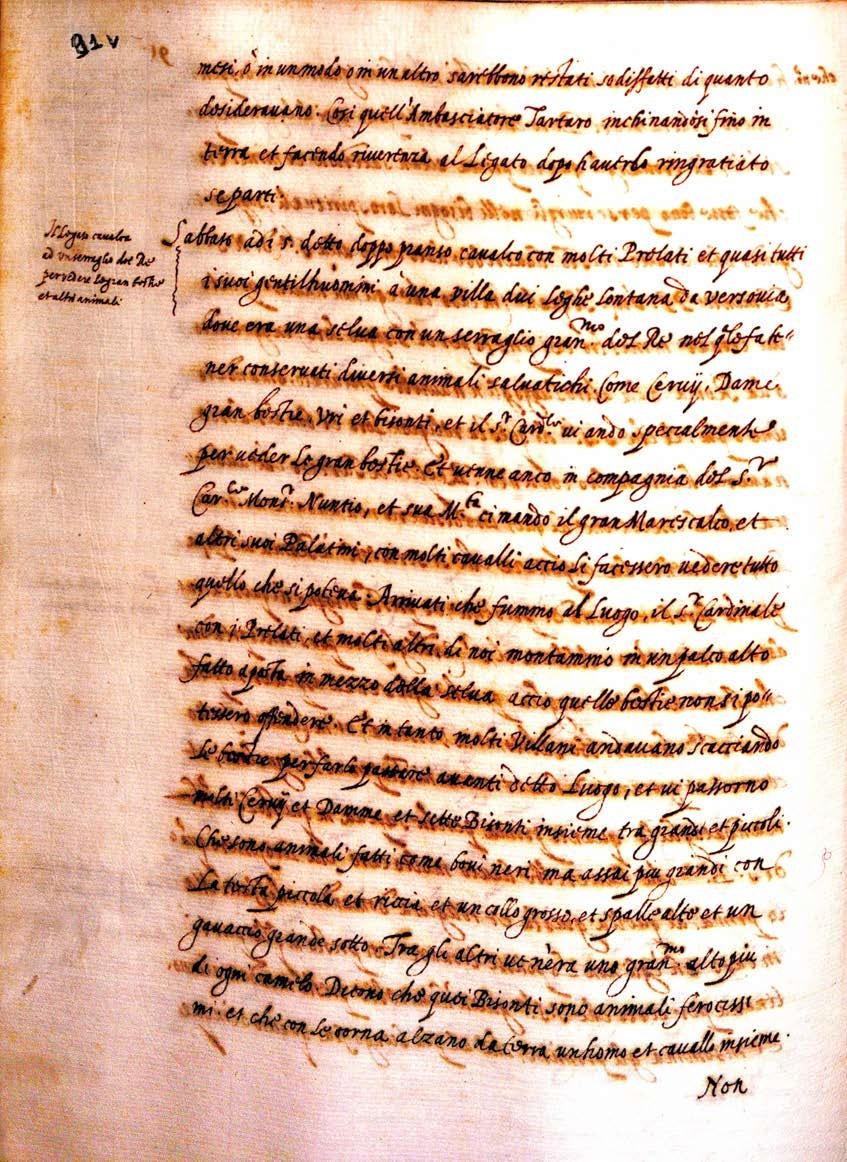 91 v
mesi, ò in un modo o in un altro sarebbono restati sodisfatti di quanto
desideravano. Cosi quell'Ambasciatore Tartaro inchinandosi fino in
terra et facendo riverenza al Legato dopo hauerlo ringratiato
se parti
Il Legato cavalca
ad un serraglio del Re
per vedere le gran bestie
et altri animali
Sabbato adi 5. detto doppo pranso cavalco con molti Prelati et quasi tutti
i suoi gentilhuomini à una villa dui leghe lontana da Versovia
dove era una selva con un serraglio gran.mo del Re nel qle fa te-
ner conservati diversi animali salvatichi Come Cervij, Dame
gran bestie, Uri et bisonti, et il s.r Card.le vi andò specialmente
per veder le gran bestie. Et venne anco in compagnia del S.r
Car.le Mons.r Nuntio, et sua M.tà ci mandò il gran Marescalco, et
altri suoi Palatini, con molti cavalli acciò li facessero vedere tutto
quello che si poteva. Arrivati che fummo al Luogo, il s.r Cardinale
con i Prelati, et molti altri di noi montammo in un palco alto
fatto aposta in mezzo della selva acciò quelle bestie non si po-
tessero offendere. Et in tanto molti Villani andavano scacciando
le bestie per farle passare avanti detto Luogo, et vi passorno
molti Cervij et Damme et sette Bisonti insieme tra grandi et piccoli.
Che sono animali fatti come bovi neri, ma assai piu grandi con
La testa piccola et riccia et un collo grosso, et spalle alte et un
gavaccio grande sotto. Tra gli altri ve n'era uno gran.mo alto piu
di ogni camelo. Dicono che quei Bisonti sono animali ferocissi
mi. et che con le corna alzano da terra un homo et cavallo insieme.
Non